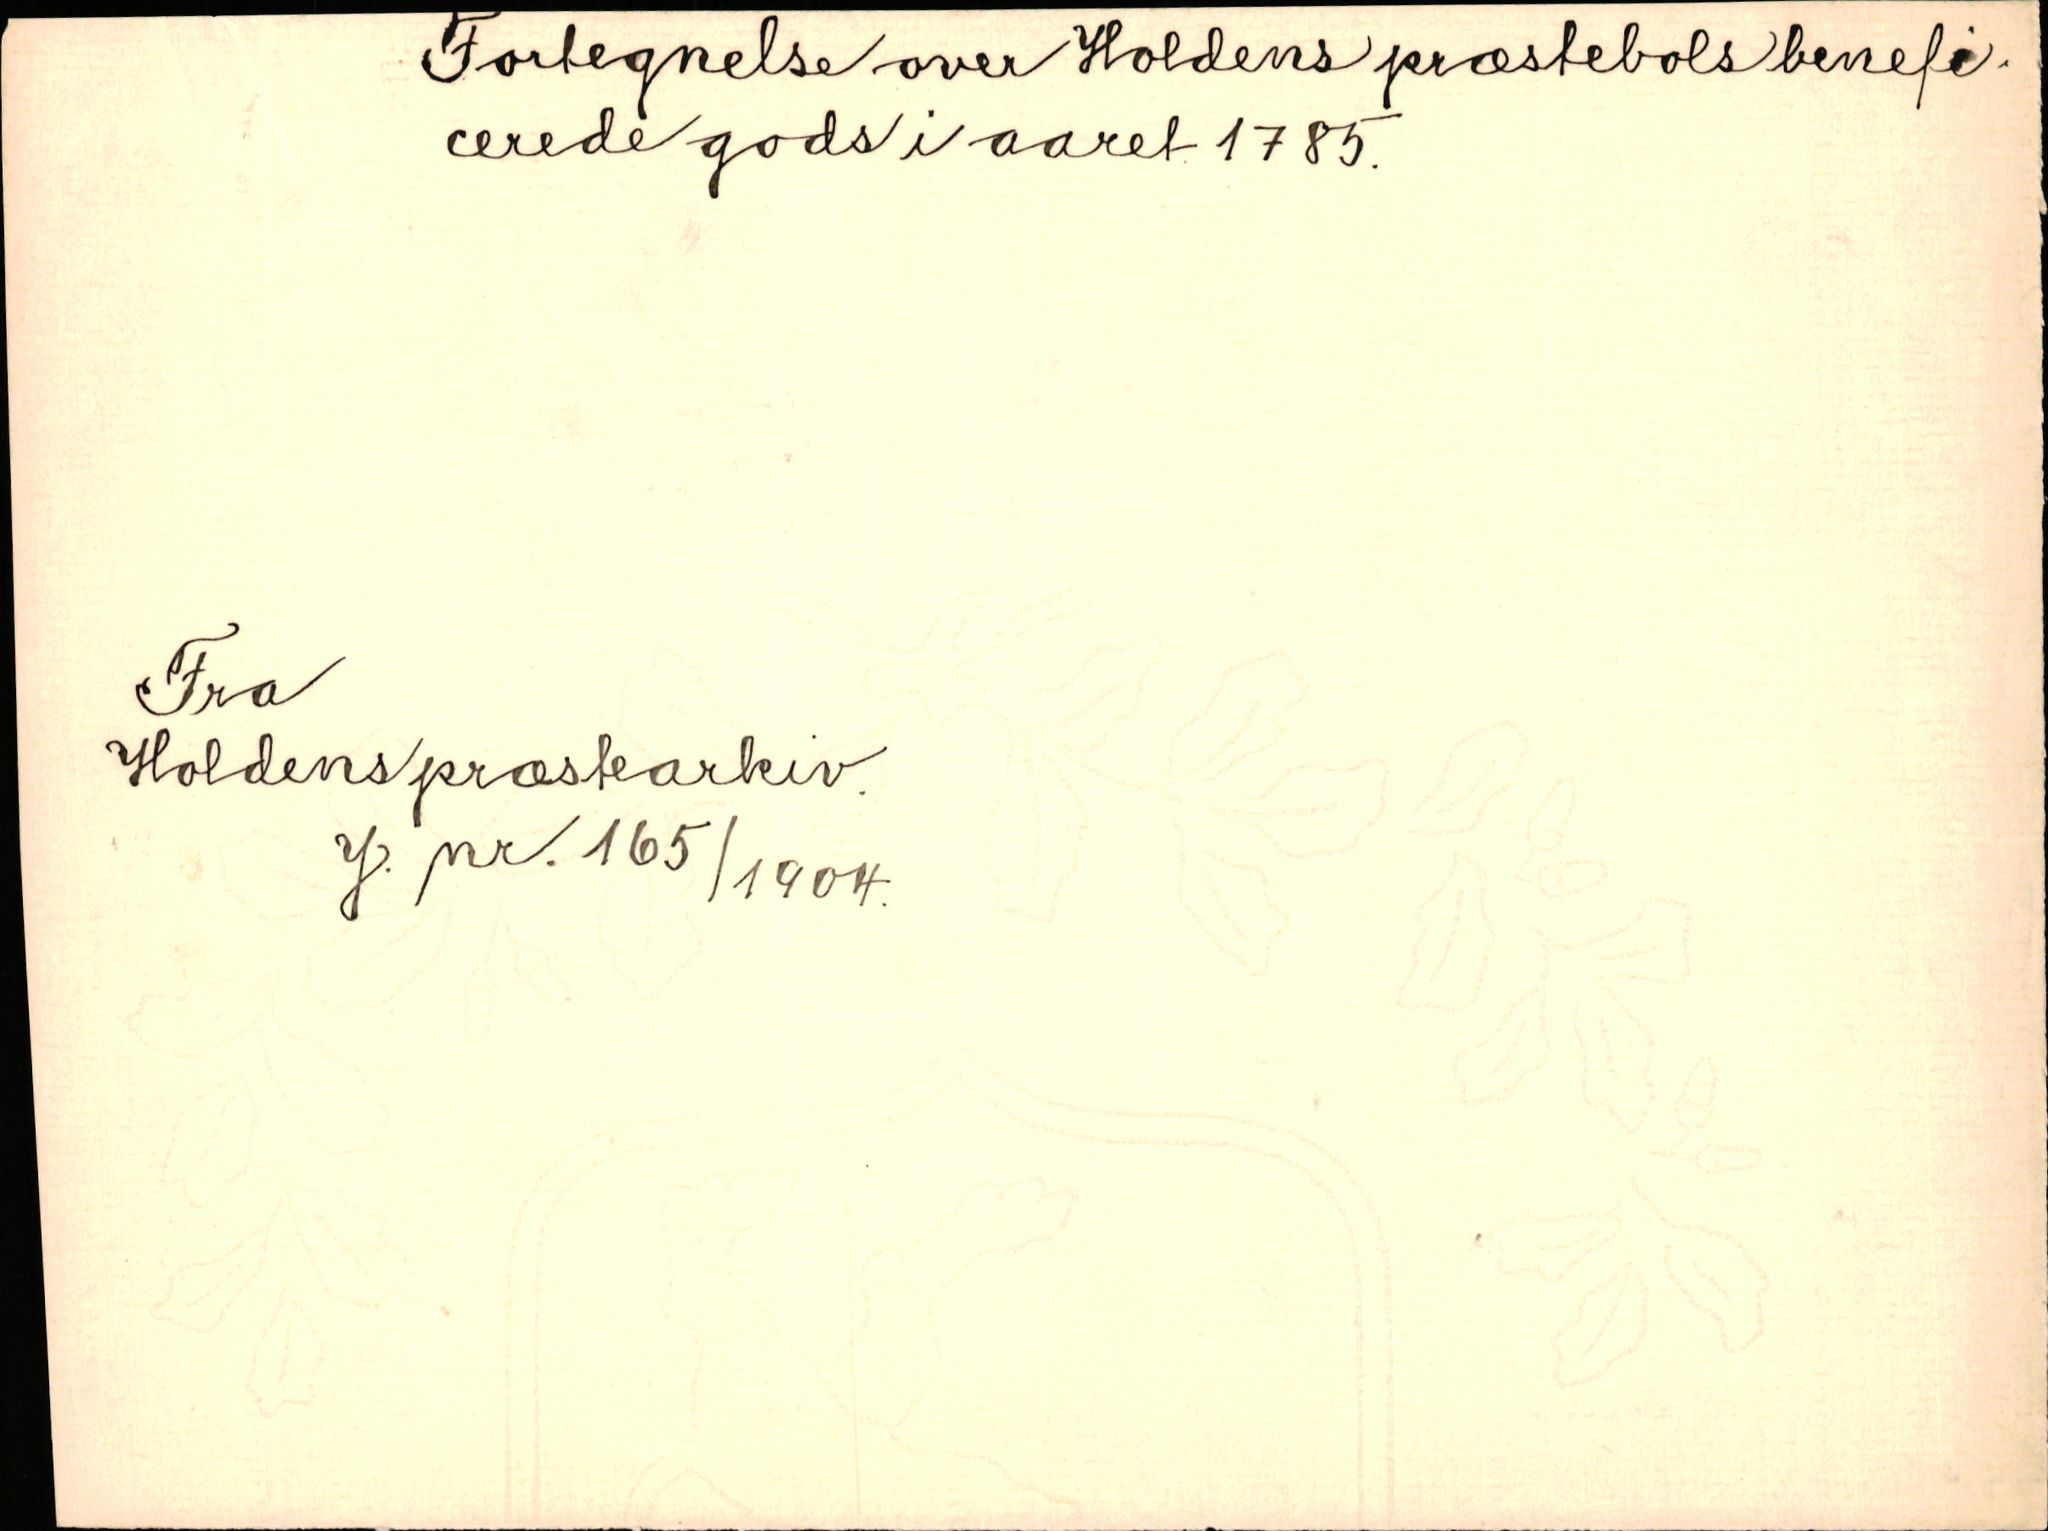 Fortegnelse over Holdens præstebols benefi-
cerede gods i aaret 1785.
Fra
Holdens præstearkiv.
J. nr. 165/1904.